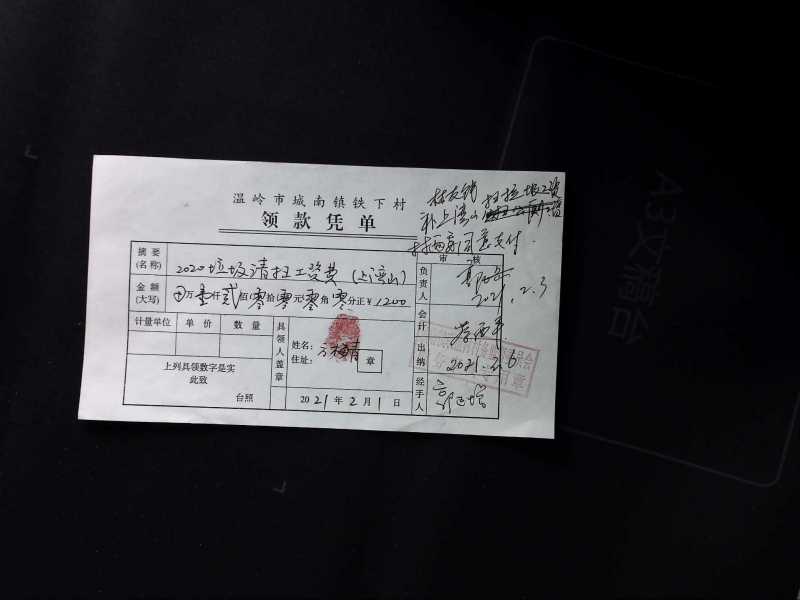 温岭市城南镇铁下村
领款凭单
村友钱扫垃圾工资
补上湾山
村两委同意支付.
摘要
(名称)
2020垃圾清扫工资费(上湾山)
金额
(大写)
万壹仟贰佰零拾零元零角零分正¥1200
计量单位 单价 数量
上列具领数字是实
此致
台照
具领人盖章
姓名:
住址:
章
2021年2月1日
审核
负责人
2021.2.3
会计
出纳
2021.2.6
经手人
A3文稿台